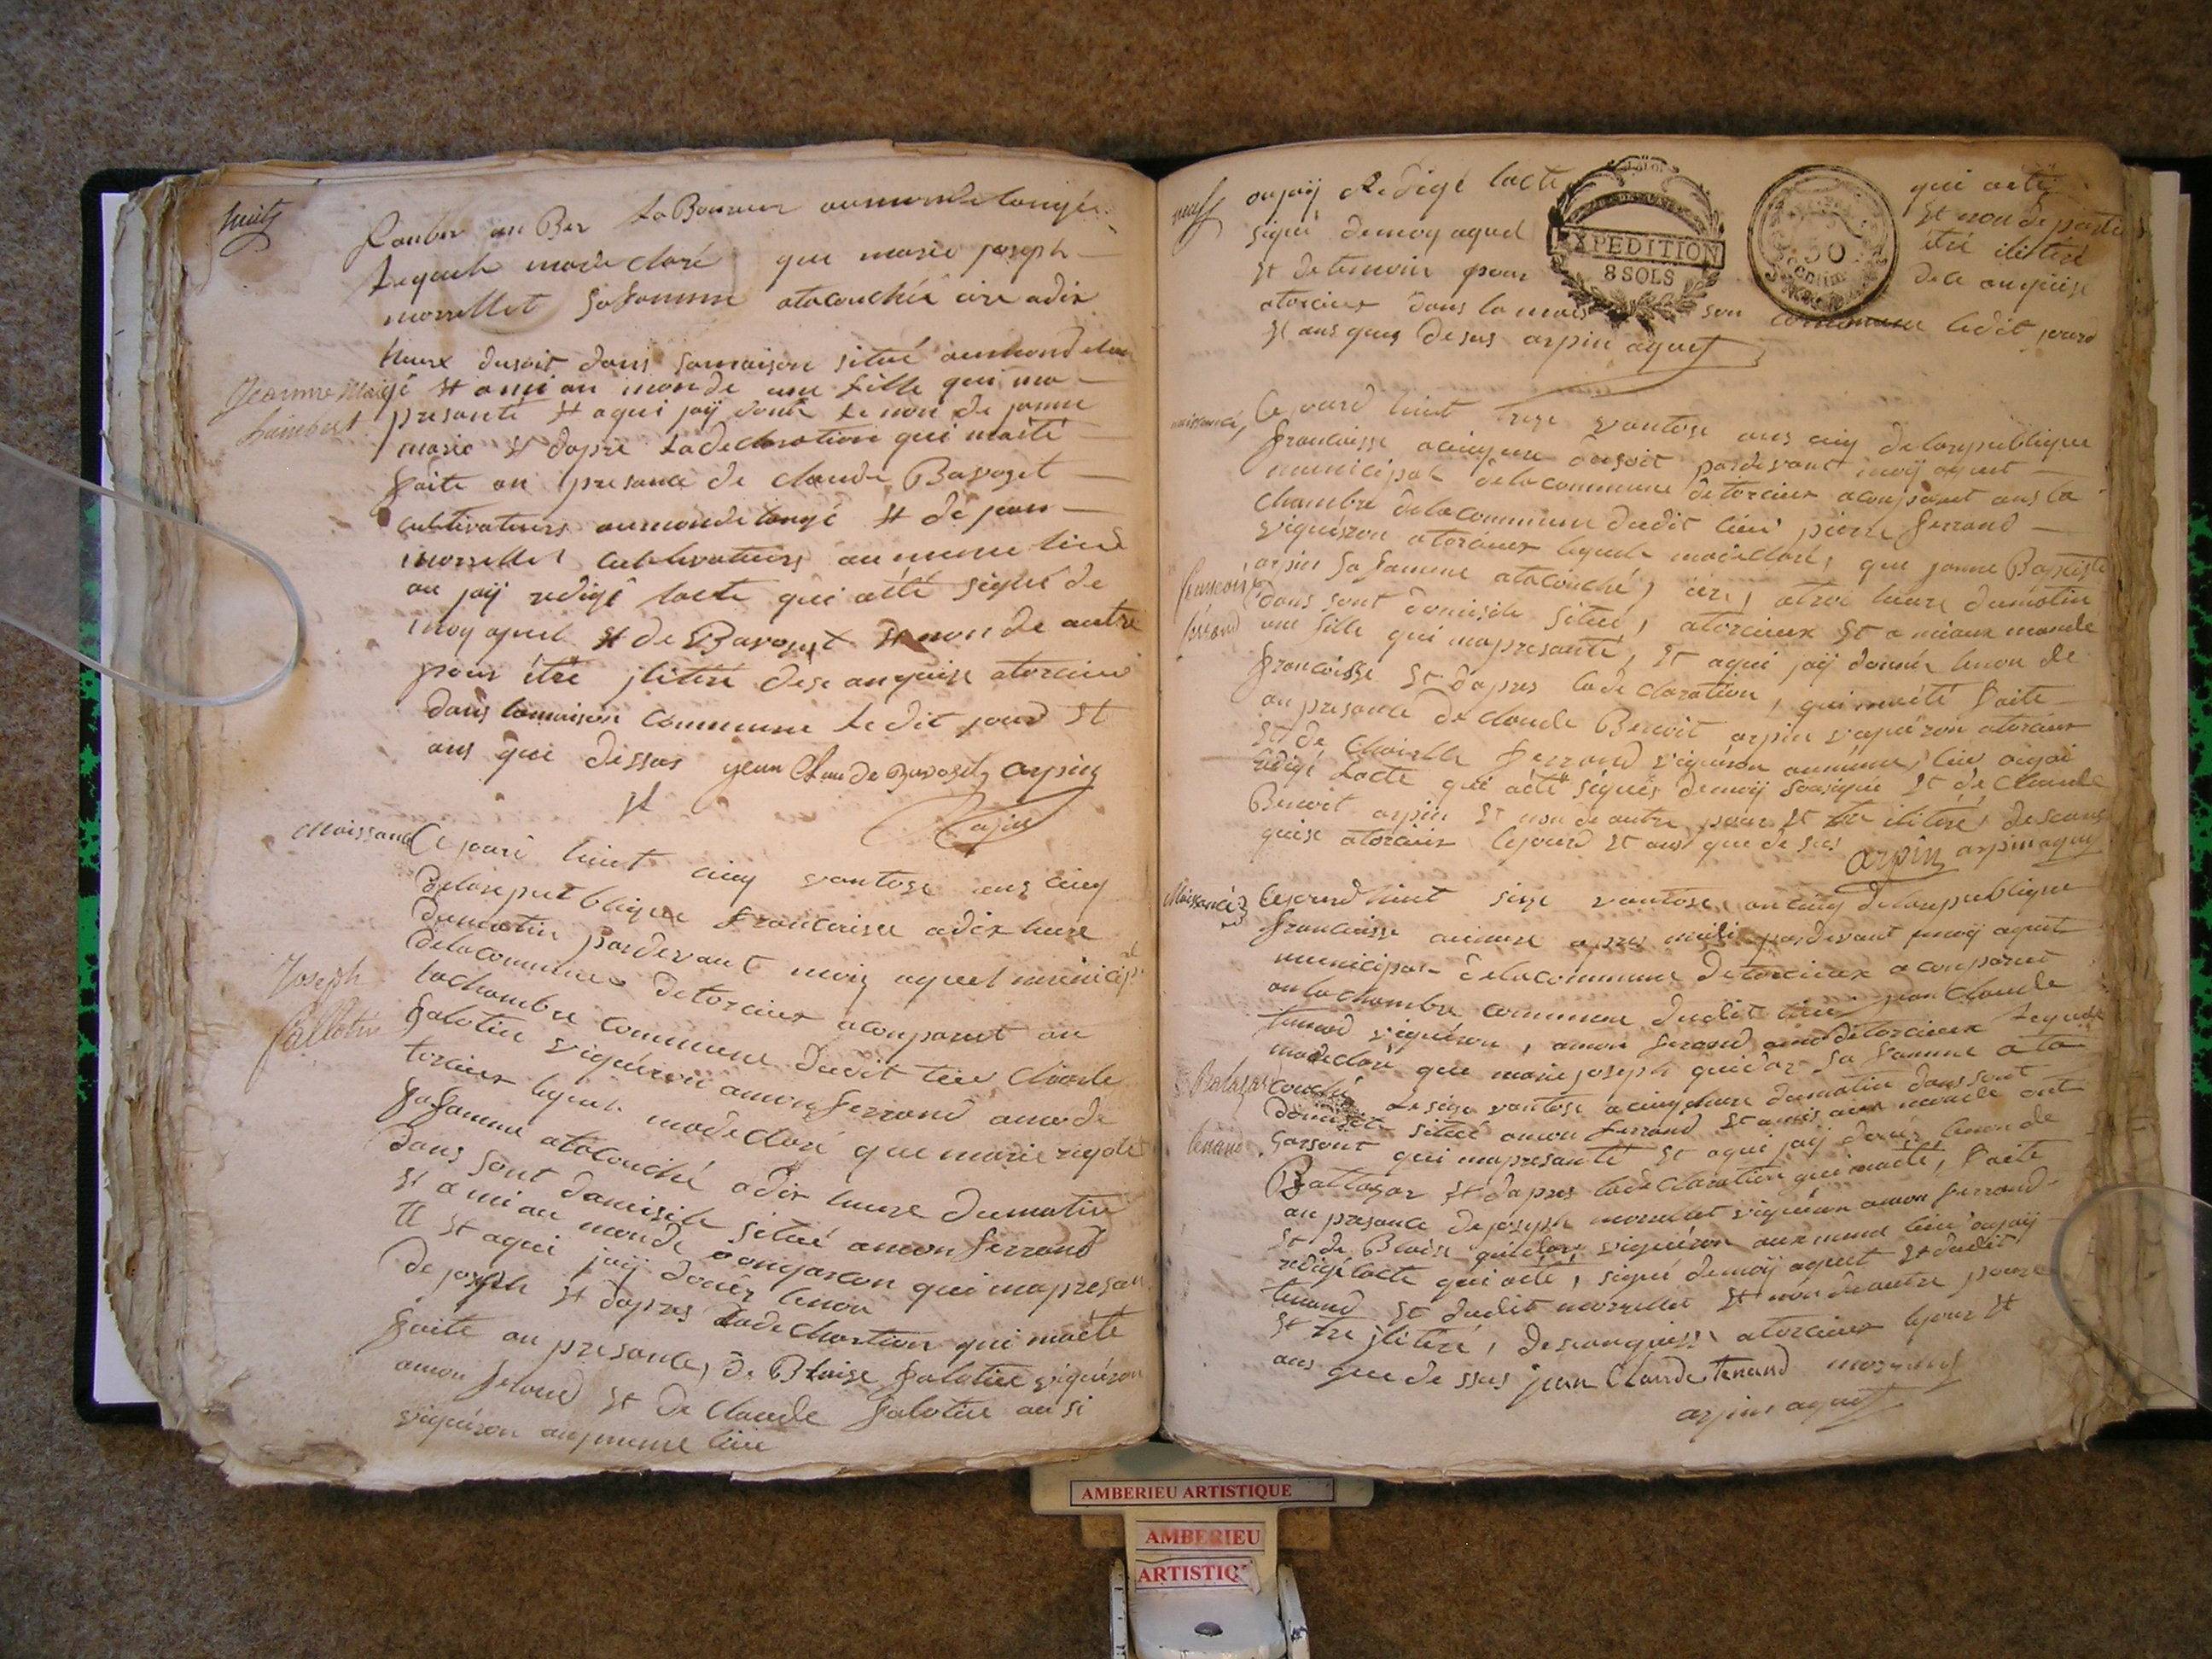 huits
Lambert LaBoureur aumondelongés
Lequele made claré que marie joseph
morellet safamme atacouchée iere adix
heure dusoit dans samaison situé aumondelon
gé et a mi au monde une fille qui ma
Jeanne Marie
Lambert
presanté et aqui jaÿ donné le non de janne
marie et dapré ladeclaration qui maété
faite an presance de claude Bavozet
cultivateurs aumondelongé et de jean
morrellet cultivateurs au meme lieu
au jaÿ redigé lacte qui atté signé de
moy agent et de Bavozet et non de autre
pour itré jlitéré dese anquise atorcieu
dans lamaison Commune ledit jourd et
ans que dessus jean Claude Bavozet arpin
Naissance
Ce jourd huit cinq vantose ans cinq
delarepublique francaise adix heure
dumatin pardevant moiy agent municipal
delacommune detorcieux aconparut an
Joseph
fallotin
lachambre commune dudit lieu Charle
falotin vigneron amonferrand amode
torcieux lequel madeclaré que marie rigolet
safamme atacouché adix heure dumatin
dans sont domisile situé amonferrand
et a mi au monde ongarcon qui mapresan
té et aqui jaÿ donér lenon
de joseph et dapres ladeclaration qui maété
faite an presance, de Blaise falotin vigneron
amon ferand et de claude falotin ausi
vigneron aumeme lieu
neuf
aujaÿ Redigé lacte qui aété
signé demoy agent et non de parti
EXPEDITION
8 SOLS
50
centimes
et detemoin pour itré ilitéré
atorcieux dans lamaison commune ledit jourd
et ans que desus arpin agent
naissance
Cejourd huit treze vantose ans cinq delarepublique
francaisse acinq ure dusoit pardevant moiÿ agent
municipal delacommune detorcieux aconparut ans la
chambre delacommune dudit lieu pierre ferrand
vigneron atorcieux lequele madeclaré, que janne Baptiste
arpin safamme atacouché, iere, atroi heure dumatin
francoise
ferand
dans sont domisile situé, atorcieux et a mi aux monde
une fille qui mapresanté, et aqui jaÿ donnér lenon de
francoisse et dapres ladeclaration, qui maété faite
an presance de claude Benoit arpin vigneron atorcieux
et de Charle ferrand vigneron aumeme lieu aujai
redigé lacte qui aété signés demoiÿ sousigné et de claude
Benoit arpin et non de autre pour et tre ilitéré, desean
quise atorcieux lejourd et ans que desus arpin arpin agent
Naissance
Cejourd huit seize vantose, an cinq delarepublique
francaisse aunure apres midi pardevant moiÿ agent
municipal delacommune detorcieux aconparut
an lachambre commune dudit lieu jean Claude
tenand vigneron, amon ferand detorcieux lequel
madeclaré que marie joseph guidor sa famme ata
Baltazar
tenand
couché le seize vantose acinq heure dumatin dans sont
domisile situé amon ferrand et amis aux monde ont
Garsont qui mapresanté et aqui jaÿ donér lenon de
Baltazar et dapres ladeclaration qui maété, faite
an presance dejoseph morrellet vigneron amon ferrand
et de Blaise guidor vigneron aux meme lieu aujaÿ
redigé lacte qui aété, signé demoiÿ agent et dudit
tenand et dudit morrellet et non deautre pour
et tre jlitéré, deseanquisse atorcieux lejour et
ans que dessus jean Claude tenand morrellet
arpin agent
AMBERIEU ARTISTIQUE
AMBERIEU
ARTISTIQ